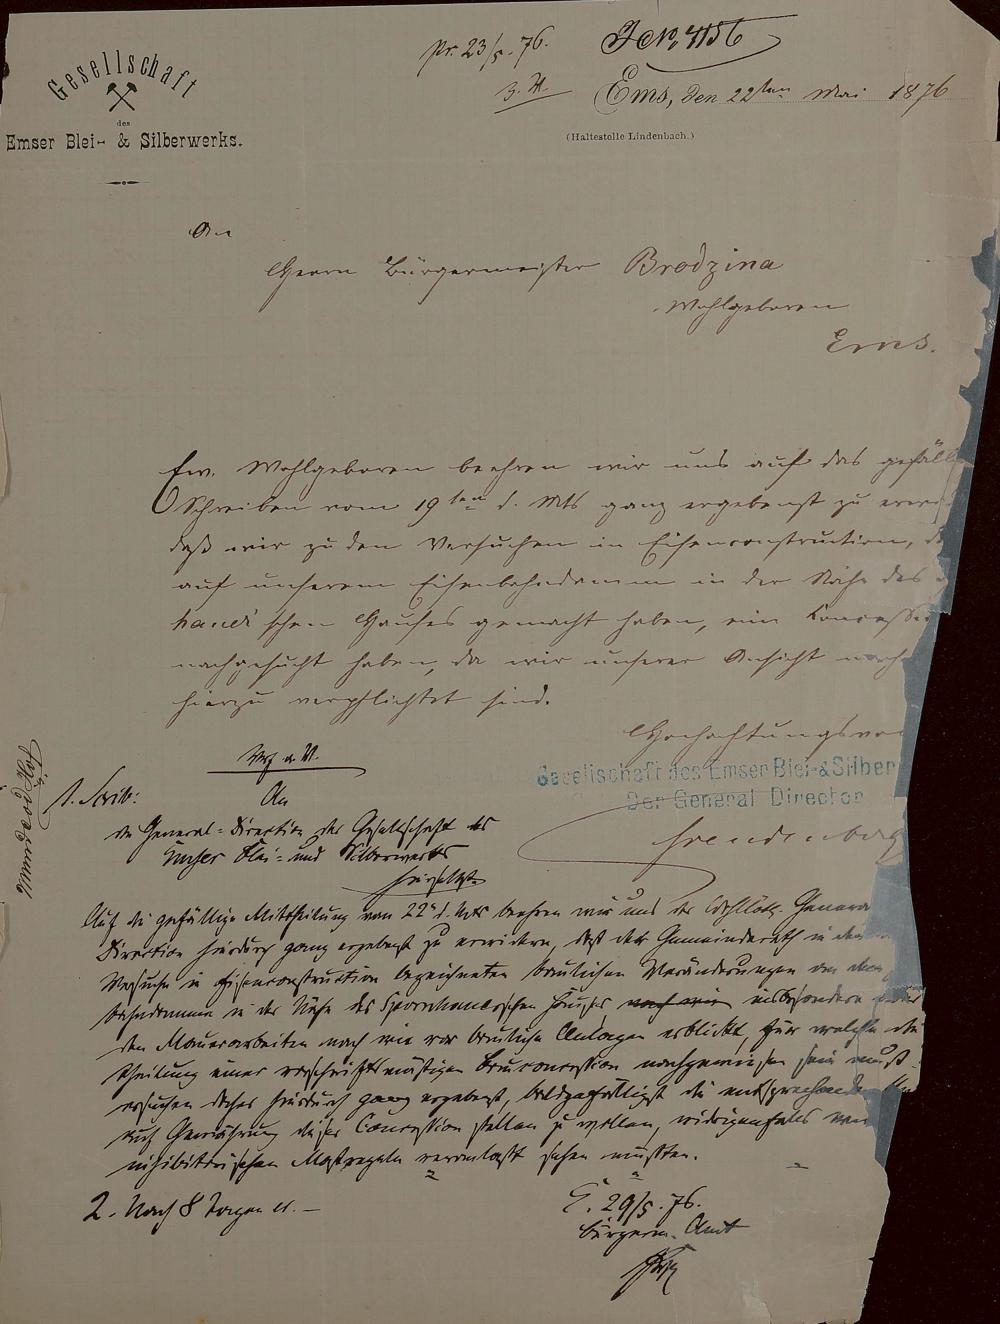 Gesellschaft
des
Emser Blei- & Silberwerks.
pr. 23/5. 76.
J. No. 4156
Ems, den 22ten Mai 1876
(Haltestelle Lindenbach.)
An
Herrn Bürgermeister Brodzina
Wohlgeboren
Ems.
Ew. Wohlgeboren beehren wir uns auf das gefäll
Schreiben vom 19ten d. Mts ganz ergebenst zu erwi
daß wir zu den Versuchen in Eisenconstruction, d
auf unserem Eisenbahndamm in der Nähe des
hauer'schen Hauses gemacht haben, ein Concessi
nachgesucht haben, da wir unserer Ansicht nach
hierzu verpflichtet sind.
Hochachtungsvo
Gesellschaft des Emser Blei- & Silber
Der General Director
Freudenberg
1. Schrb:
An
die General-Direction der Gesellschaft des
Emser Blei- und Silberwerks
hierselbst
Auf die gefällige Mittheilung vom 22ten d. Mts beehren wir uns der Wohllöbl. Genera
Direction hierdurch ganz ergebenst zu erwidern, daß der Gemeinderath in den
Versuche in Eisenconstruction bezeichneten baulichen Veränderungen an dem
bahndamme in der Nähe des Hauses insbesondere
den Maurerarbeiten nach wie vor bauliche Anlagen erblickt, für welche die
theilung einer vorschriftsmäßigen Bauconcession nachgewiesen sein muß.
ersuchen daher hierdurch ganz ergebenst, baldgefälligst die entsprechende
auf Gewährung dieser Concession stellen zu wollen, widrigenfalls
inhibitorischen Maßregeln veranlaßt sehen müßten.
2. Nach 8 Tagen
E. 29/5. 76.
Bürgerm. Amt